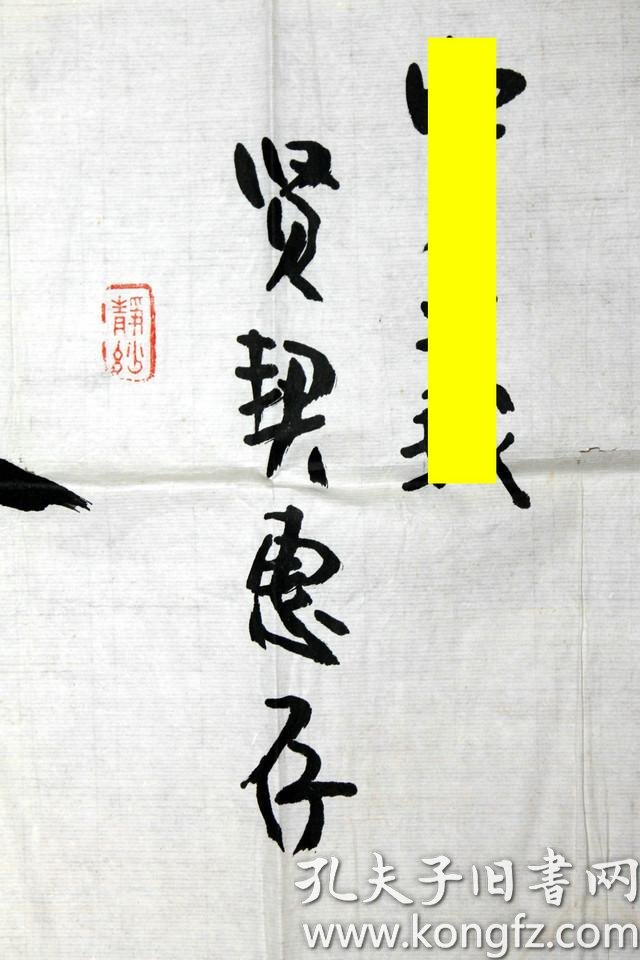 贤契惠存
靜纱
孔夫子旧書网
www.kongfz.com